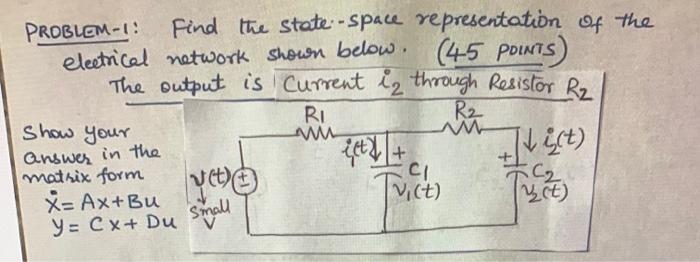 PROBLEM-1: Find the state-space representation of the
electrical network shown below. (45 POINTS)
The output is Current i2 through Resistor R2
Show your
answer in the
matrix form
ẋ = Ax+Bu
y = Cx+Du
R1
R2
i(t)
i2(t)
+
+
C1
C2
v(t)
±
v1(t)
v2(t)
small
v